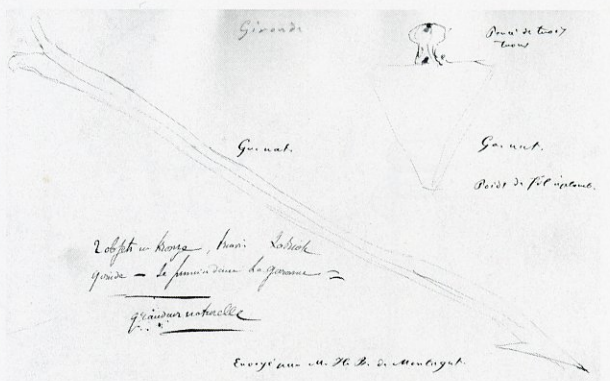 Gironde
Percé de trois
trous
Grenat.
Grenat.
Poids de fil à plomb.
2 objets en bronze, trouvés
Gironde — le premier dans la Garonne —
grandeur naturelle
Envoyé par M. H. B. de